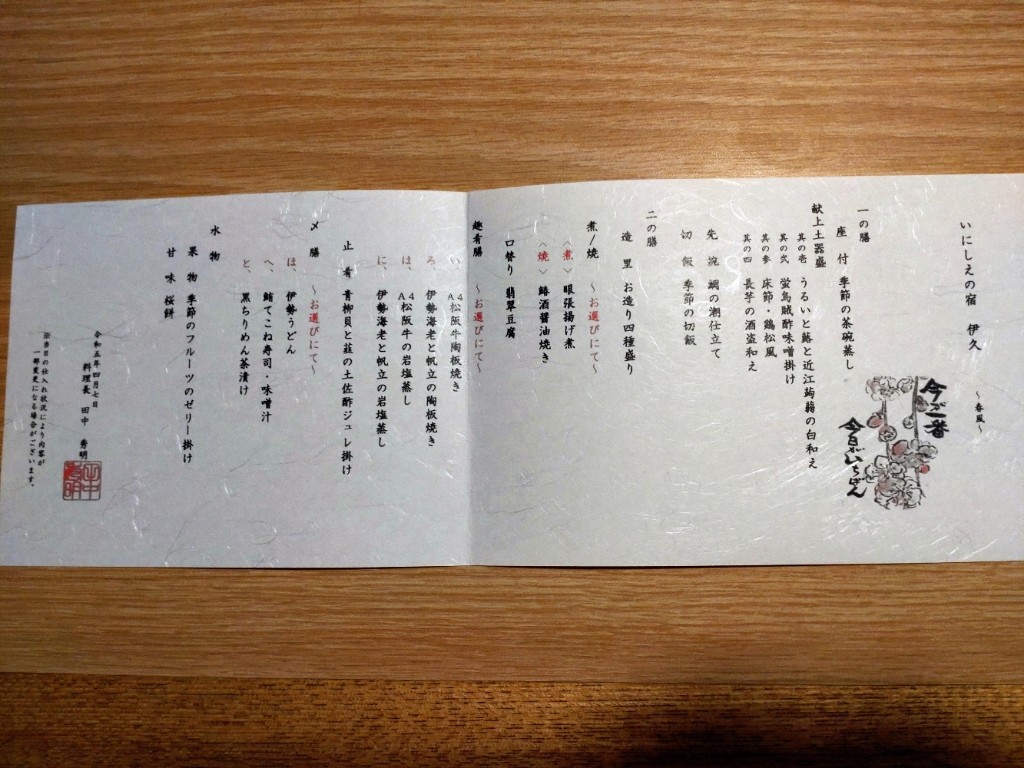 いにしえの宿 伊久
～春風～
今が一番
今日がいちばん
一の膳
座付 季節の茶碗蒸し
献上土器盛
其の壱 うるいと鰆と近江蒟蒻の白和え
其の弐 蛍烏賊酢味噌掛け
其の参 床節・鶏松風
其の四 長芋の酒盗和え
先椀 鯛の潮仕立て
切飯 季節の切飯
二の膳
造里 お造り四種盛り
煮/焼 ～お選びにて～
〈煮〉眼張揚げ煮
〈焼〉鰆酒醤油焼き
口替り 翡翠豆腐
趣肴膳 ～お選びにて～
い、A4松阪牛陶板焼き
ろ、伊勢海老と帆立の陶板焼き
は、A4松阪牛の岩塩蒸し
に、伊勢海老と帆立の岩塩蒸し
止肴 青柳貝と韮の土佐酢ジュレ掛け
〆膳 ～お選びにて～
ほ、伊勢うどん
へ、鮪てこね寿司・味噌汁
と、黒ちりめん茶漬け
水物
果物 季節のフルーツのゼリー掛け
甘味 桜餅
令和五年四月七日
料理長 田中 秀明
※当日の仕入れ状況により内容が
一部変更になる場合がございます。